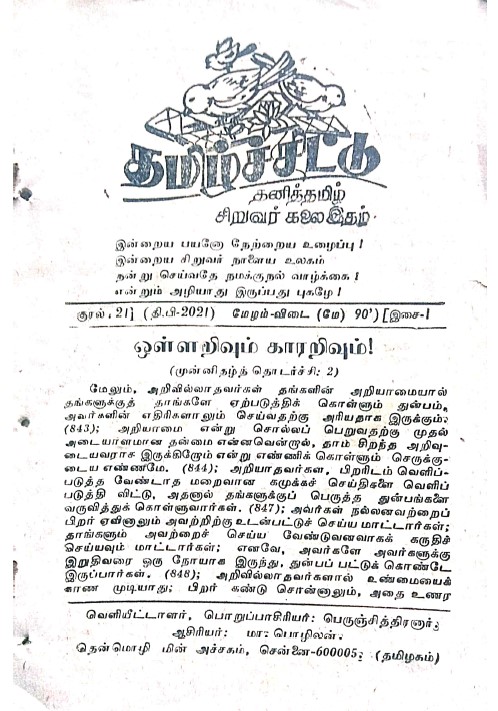 தமிழ்ச்சிட்டு
தனித்தமிழ்
சிறுவர் கலைஇதழ்
இன்றைய பயனோ நேற்றைய உழைப்பு!
இன்றைய சிறுவர் நாளைய உலகம்
நன்று செய்வதே நமக்குநல் வாழ்க்கை!
என்றும் அழியாது இருப்பது புகழே!
குரல்.21] (தி.பி-2021) மேழம்-விடை (மே) 90') [இசை-1
ஒள்ளறிவும் காரறிவும்!
(முன்னிதழ்த் தொடர்ச்சி: 2)
மேலும், அறிவில்லாதவர்கள் தங்களின் அறியாமையால்
தங்களுக்குத் தாங்களே ஏற்படுத்திக் கொள்ளும் துன்பம்,
அவர்களின் எதிரிகளாலும் செய்வதற்கு அரியதாக இருக்கும்;
(843); அறியாமை என்று சொல்லப் பெறுவதற்கு முதல்
அடையாளமான தன்மை என்னவென்றால், தாம் சிறந்த அறிவு-
டையவராக இருக்கிறோம் என்று எண்ணிக் கொள்ளும் செருக்கு-
டைய எண்ணமே. (844); அறியாதவர்கள், பிறரிடம் வெளிப்-
படுத்த வேண்டாத மறைவான கமுக்கச் செய்திகளை வெளிப்
படுத்தி விட்டு, அதனால் தங்களுக்குப் பெருத்த துன்பங்களை
வருவித்துக் கொள்ளுவார்கள். (847); அவர்கள் நல்லனவற்றைப்
பிறர் ஏவினாலும் அவற்றிற்கு உடன்பட்டுச் செய்ய மாட்டார்கள்;
தாங்களும் அவற்றைச் செய்ய வேண்டுவனவாகக் கருதிச்
செய்யவும் மாட்டார்கள்; எனவே, அவர்களே அவர்களுக்கு
இறுதிவரை ஒரு நோயாக இருந்து, துன்பப் பட்டுக் கொண்டே
இருப்பார்கள். (848); அறிவில்லாதவர்களால் உண்மையைக்
காண முடியாது; பிறர் கண்டு சொன்னாலும், அதை உணர
வெளியீட்டாளர், பொறுப்பாசிரியர்: பெருஞ்சித்திரனார்;
ஆசிரியர்: மா. பொழிலன்.
தென்மொழி மின் அச்சகம், சென்னை-600005; (தமிழகம்)